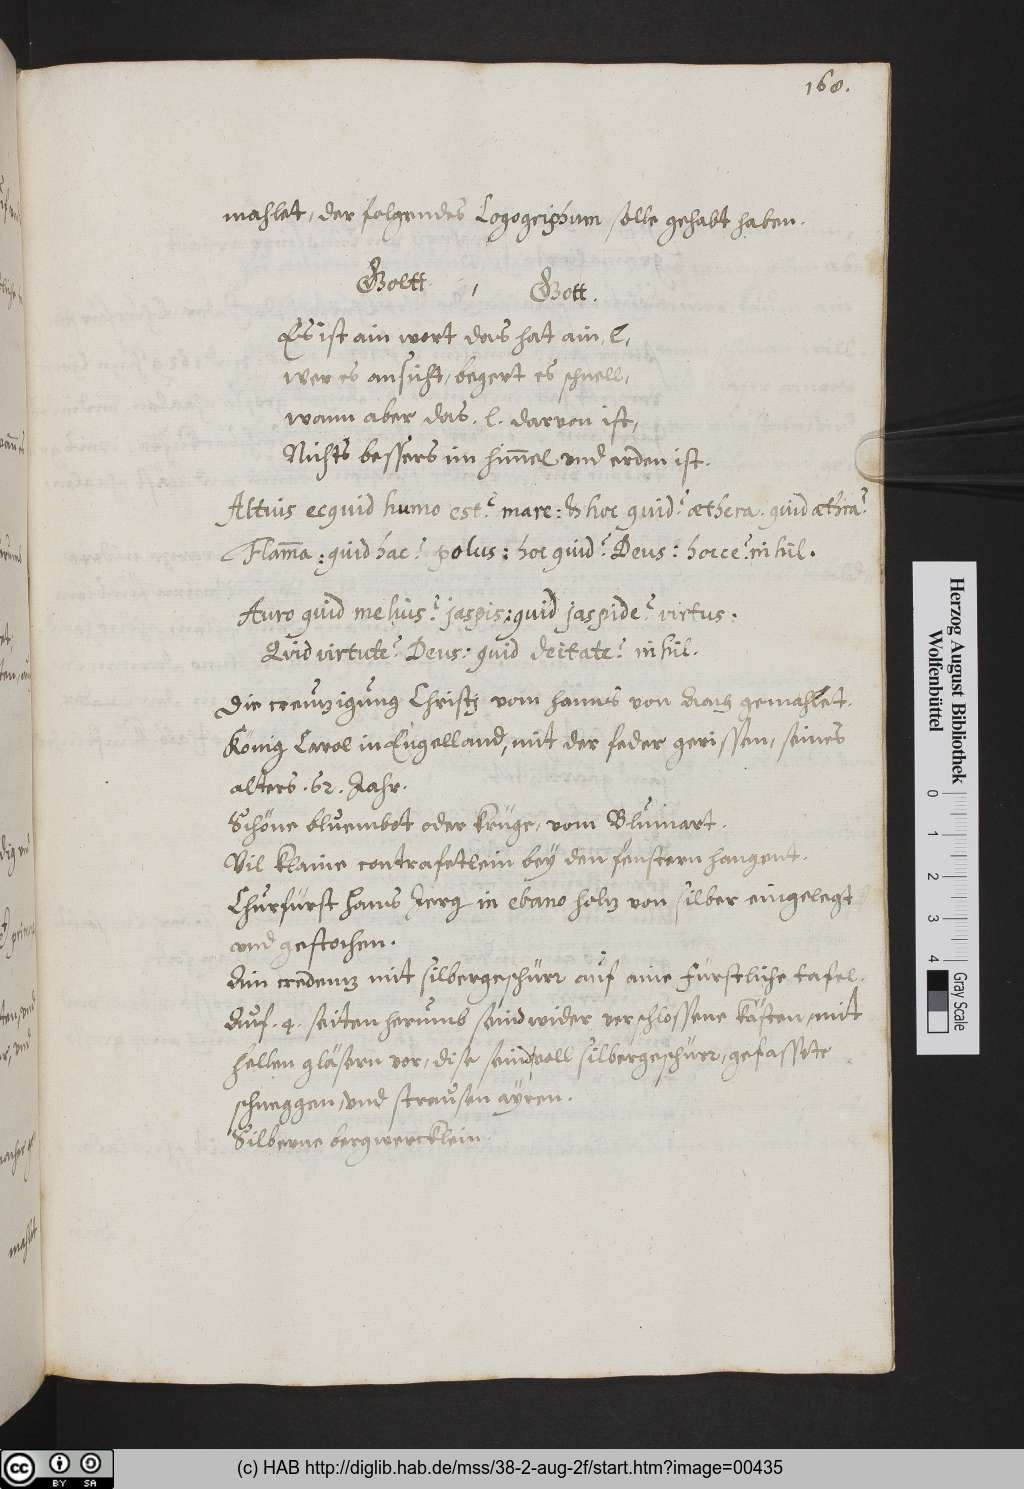 168.
mahlet, der folgendes Logogriphum solle gehabt haben.
Goltt , Gott.
Es ist ain wort das hat ain. l,
wer es ansicht, begert es schnell,
wann aber das. l. darvon ist,
Nichts bessers im him̃el und erden ist.
Altius ecquid humo est? mare: & hoc quid? æthera. quid æthra?
Flam̃a: quid hac? polus: hoc quid? Deus: hocce? nihil.
Auro quid melius? jaspis: quid jaspide? virtus:
Quid virtute? Deus: quid deitate? nihil.
Die creuzigung Christj vom hanns von Aach gemahlet.
König Carol in Engelland, mit der feder gerissen, seines
alters. 62. Jahr.
Schöne bluembot oder krüge, vom Blumart.
Vil klaine contrafetlein bey den fenstern hangent.
Churfürst Hanns Jerg in ebano holz von silber eingelegt
und gestochen.
Ain credenz mit silbergeschürr auf aine fürstliche tafel.
Auf. 4. seiten herumb seind wider verschlossene kästen, mit
hellen gläsern vor, dise seind voll silbergeschürr, gefasste
schneggen, und straussen ayren.
Silberne bergwercklein.
Herzog August Bibliothek
Wolfenbüttel
0 1 2 3 4
Gray Scale
cc BY SA
(c) HAB http://diglib.hab.de/mss/38-2-aug-2f/start.htm?image=00435